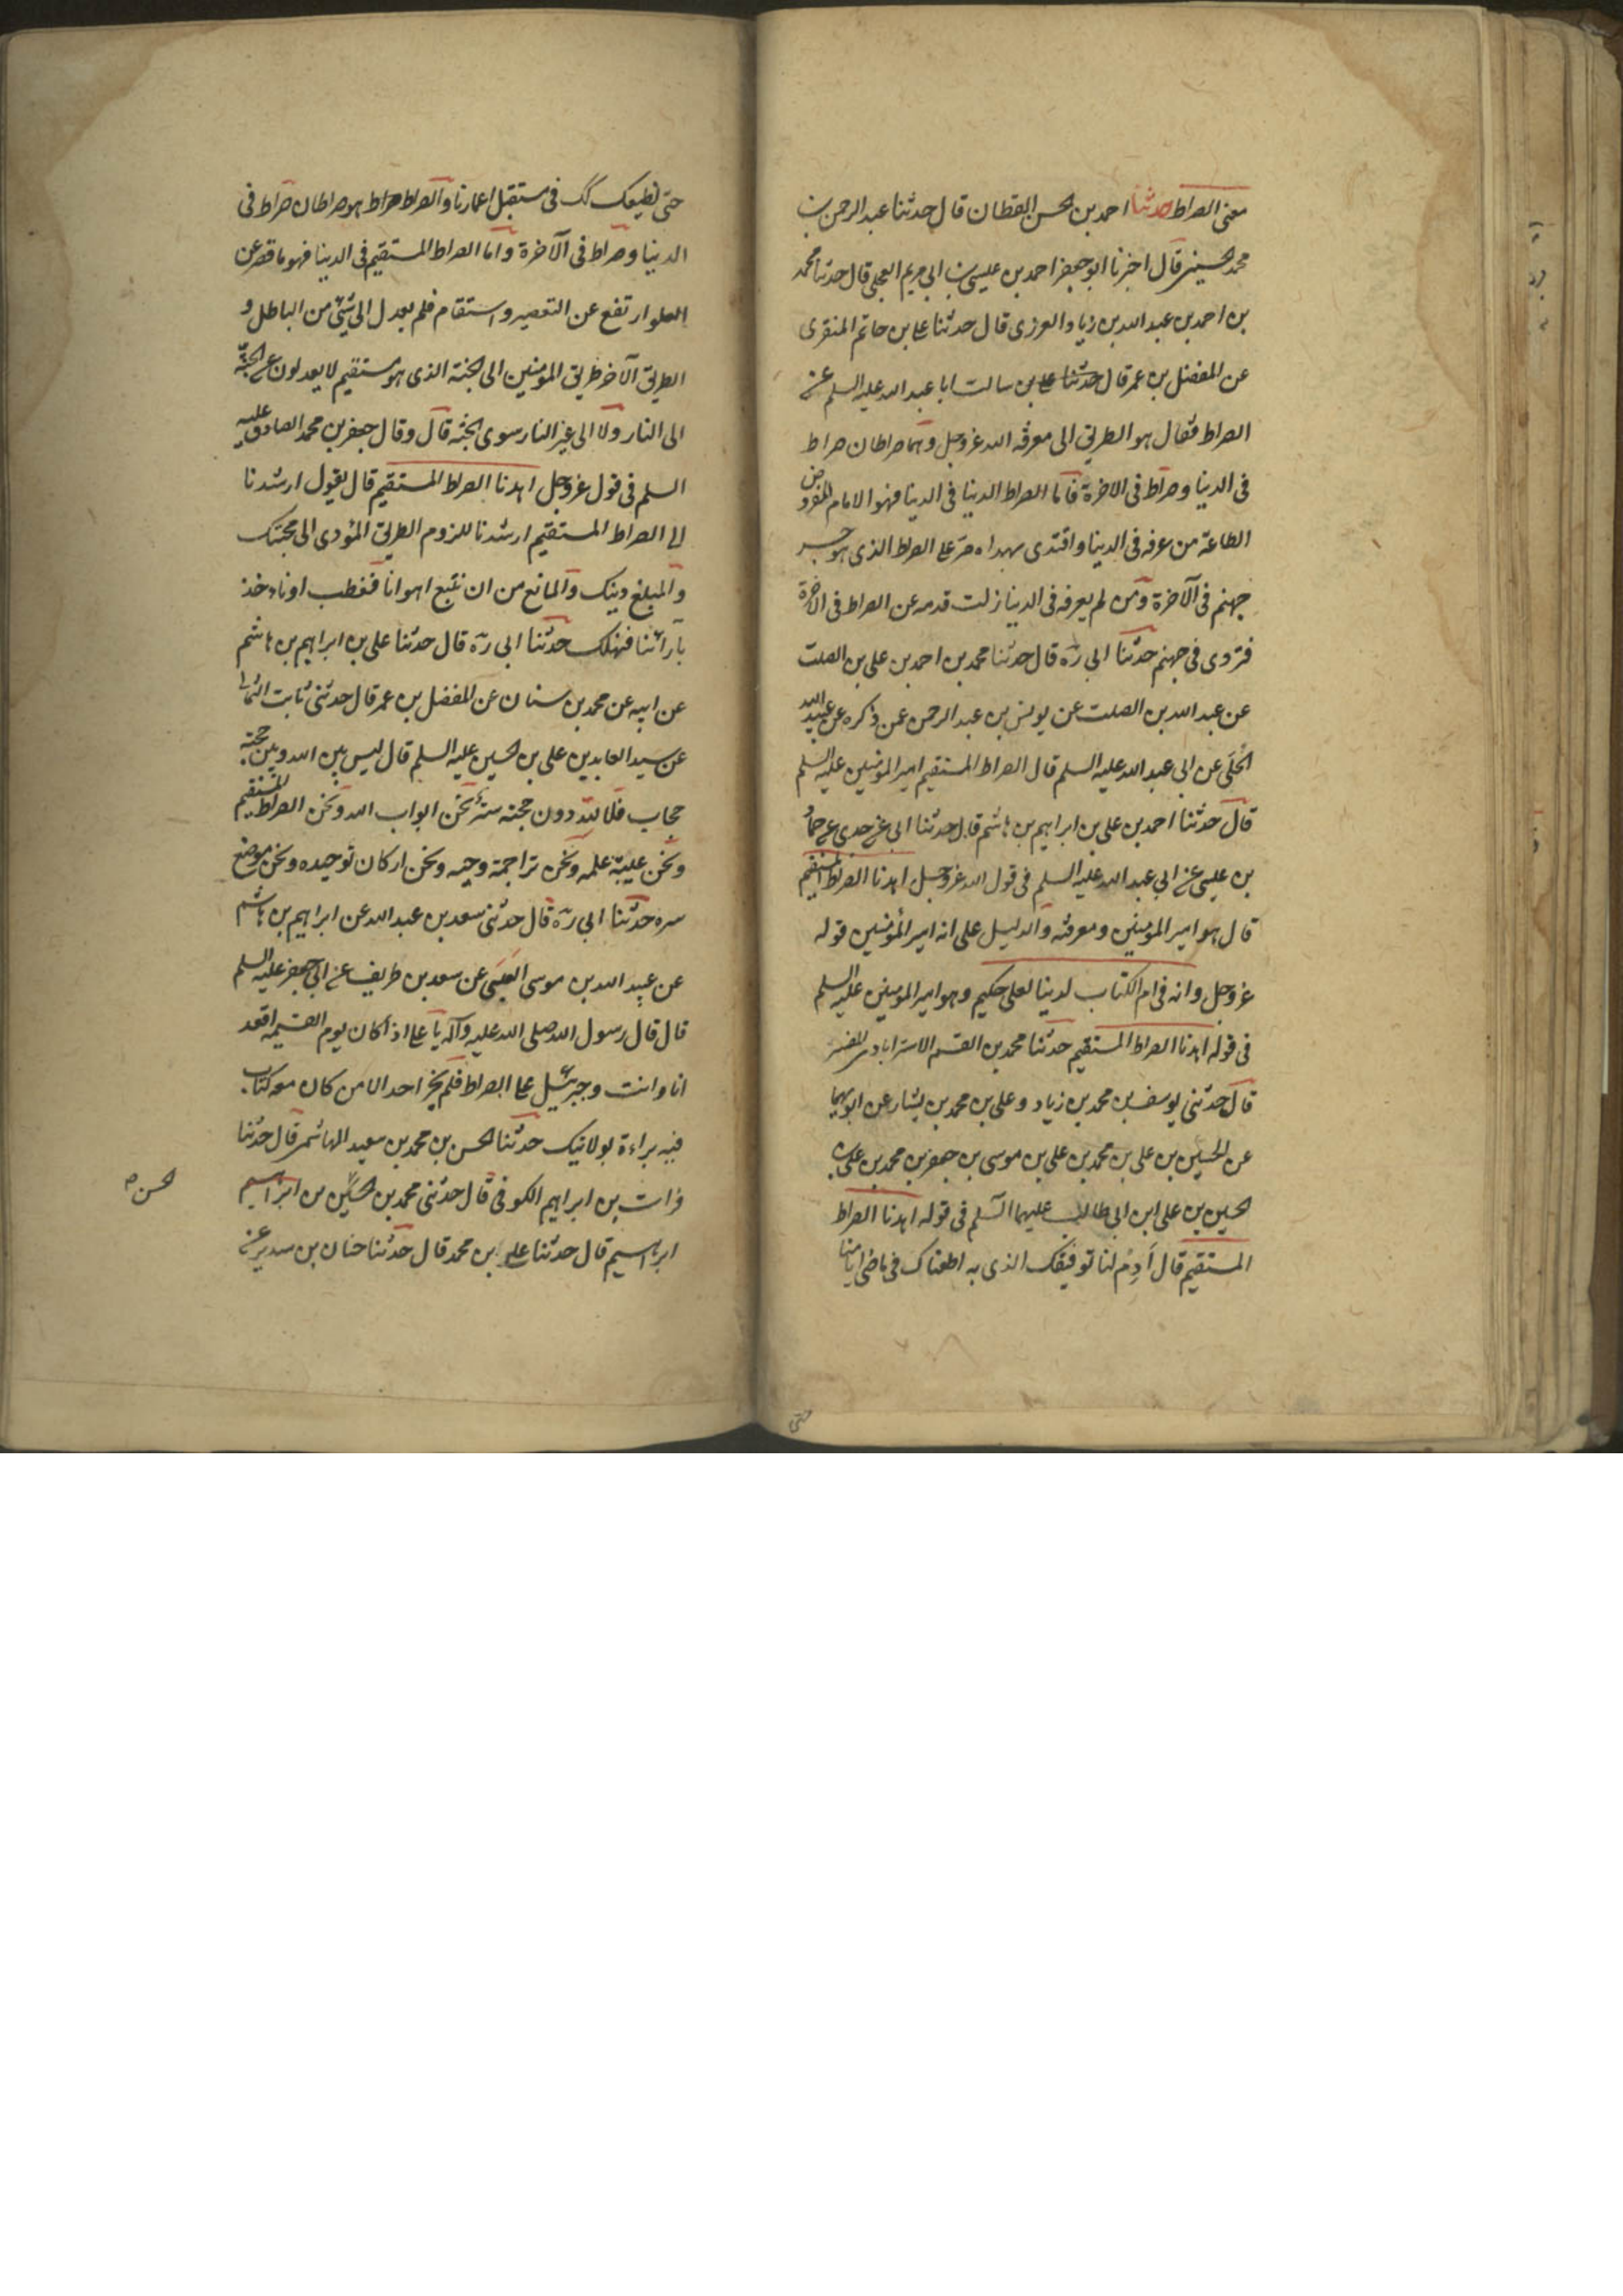 معنى الصراط حدثنا احمد بن الحسن القطان قال حدثنا عبد الرحمن بن
محمد الحسينى قال اخبرنا ابو جعفر احمد بن عيسى بن ابى مريم العجلى قال حدثنا محمد
بن احمد بن عبد الله بن زياد العرزمى قال حدثنا على بن حاتم المنقرى
عن المفضل بن عمر قال سالت ابا عبد الله عليه السلم عن
الصراط فقال هو الطريق الى معرفة الله عز وجل وهما صراطان صراط
فى الدنيا وصراط فى الاخرة فاما الصراط الدنيا فى الدنيا فهو الامام المفروض
الطاعة من عرفه فى الدنيا واقتدى بهداه مر على الصراط الذى هو جسر
جهنم فى الآخرة ومن لم يعرفه فى الدنيا زلت قدمه عن الصراط فى الاخرة
فتردى فى جهنم حدثنا ابى ره قال حدثنا محمد بن احمد بن على بن الصلت
عن عبد الله بن الصلت عن يونس بن عبد الرحمن عمن ذكره عن عبيد الله
الحلبى عن ابى عبد الله عليه السلم قال الصراط المستقيم امير المؤمنين عليه السلم
قال حدثنا احمد بن على بن ابراهيم بن هاشم قال حدثنا ابى عن جدى عن حماد
بن عيسى عن ابى عبد الله عليه السلم فى قول الله عز وجل اهدنا الصراط المستقيم
قال هو امير المؤمنين ومعرفته والدليل على انه امير المؤمنين قوله
عز وجل وانه فى ام الكتاب لدينا لعلى حكيم وهو امير المؤمنين عليه السلم
فى قوله اهدنا الصراط المستقيم حدثنا محمد بن القسم الاسترابادى المفسر
قال حدثنى يوسف بن محمد بن زياد وعلى بن محمد بن يسار عن ابويهما
عن الحسين بن على بن محمد بن على بن موسى بن جعفر بن محمد بن على بن
الحسين بن على ابن ابى طالب عليهما السلم فى قوله اهدنا الصراط
المستقيم قال أدم لنا توفيقك الذى به اطعناك فى ماضى ايامنا
حتى
حتى نطيعك كك فى مستقبل اعمارنا والصراط صراط هو صراطان صراط فى
الدنيا وصراط فى الآخرة واما الصراط المستقيم فى الدنيا فهو ما قصر عن
الغلو ارتفع عن التقصير واستقام فلم يعدل الى شئ من الباطل و
الطريق الآخر طريق المؤمنين الى الجنة الذى هو مستقيم لا يعدلون عن الجنة
الى النار ولا الى غير النار سوى الجنة قال وقال جعفر بن محمد الصادق عليه
السلم فى قول عز وجل اهدنا الصراط المستقيم قال يقول ارشدنا
الى الصراط المستقيم ارشدنا للزوم الطريق المؤدى الى محبتك
والمبلغ دينك والمانع من ان نتبع اهوانا فنعطب او ناخذ
بآرائنا فنهلك حدثنا ابى ره قال حدثنا على بن ابراهيم بن هاشم
عن ابيه عن محمد بن سنان عن المفضل بن عمر قال حدثنى ثابت الثمالى
عن سيد العابدين على بن الحسين عليه السلم قال ليس بين الله وبين حجته
حجاب فلا لله دون حجته ستر نحن ابواب الله ونحن الصراط المستقيم
ونحن عيبة علمه ونحن تراجمة وحيه ونحن اركان توحيده ونحن موضع
سره حدثنا ابى ره قال حدثنى سعد بن عبد الله عن ابراهيم بن هاشم
عن عبيد الله بن موسى العبسى عن سعد بن طريف عن ابى جعفر عليه السلم
قال قال رسول الله صلى الله عليه وآله يا على اذا كان يوم القيمة اقعد
انا وانت وجبرئيل على الصراط فلم يجز احد الا من كان معه كتاب
فيه براءة بولايتك حدثنا الحسن بن محمد بن سعيد الهاشمى قال حدثنا
فرات بن ابراهيم الكوفى قال حدثنى محمد بن الحسين من ابراهيم
الحسن
ابراهيم قال حدثنا علي بن محمد قال حدثنا حنان بن سدير عن